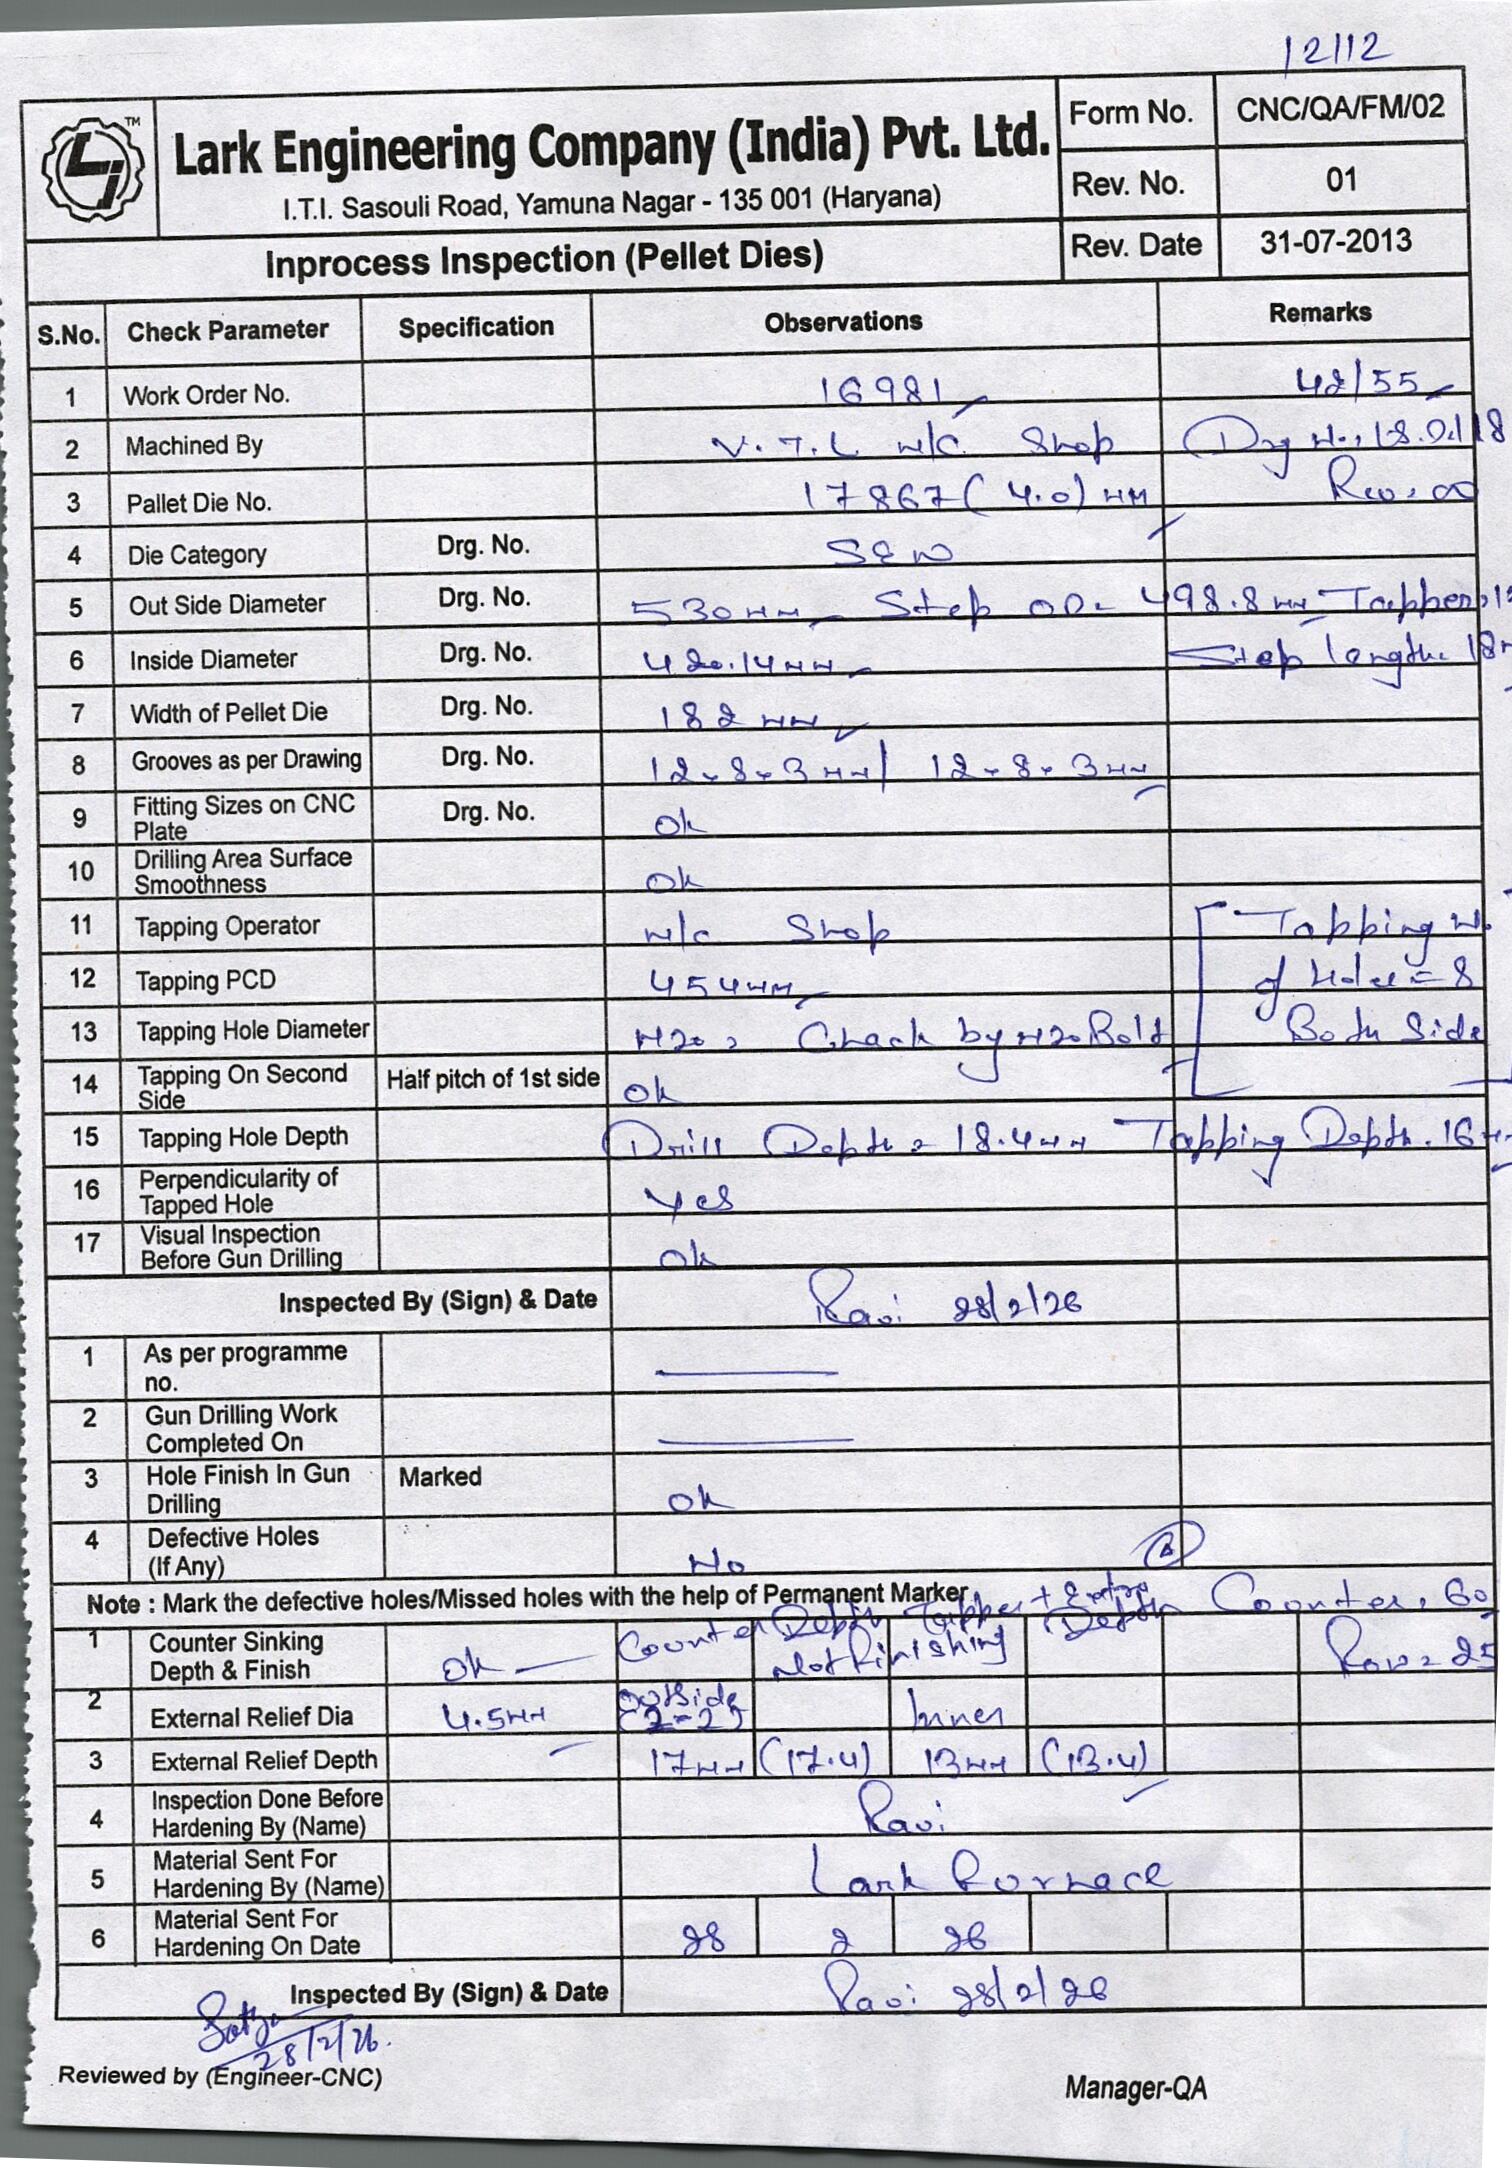 12/12
TM
Lark Engineering Company (India) Pvt. Ltd.
I.T.I. Sasouli Road, Yamuna Nagar - 135 001 (Haryana)
Form No. CNC/QA/FM/02
Rev. No. 01
Inprocess Inspection (Pellet Dies)
Rev. Date 31-07-2013
S.No. Check Parameter Specification Observations Remarks
1 Work Order No. 16981 42/55
2 Machined By V.T.L M/C Shop
3 Pallet Die No. 17867 (4.0) MM Rev. 00
4 Die Category Drg. No.
5 Out Side Diameter Drg. No. 530 mm Step OD- 498.8 mm Tapper
6 Inside Diameter Drg. No. 420.14 mm Step length. 18
7 Width of Pellet Die Drg. No. 182 mm
8 Grooves as per Drawing Drg. No. 12-8-3 mm / 12-8-3 mm
9 Fitting Sizes on CNC Plate Drg. No. Ok
10 Drilling Area Surface Smoothness Ok
11 Tapping Operator M/C Shop Tapping N.
12 Tapping PCD 454 mm of Hole = 8
13 Tapping Hole Diameter M20, Chack by M20 Bolt Both Side
14 Tapping On Second Side Half pitch of 1st side Ok
15 Tapping Hole Depth Drill Depth = 18.4 mm Tapping Depth. 16
16 Perpendicularity of Tapped Hole Yes
17 Visual Inspection Before Gun Drilling Ok
Inspected By (Sign) & Date Ravi 28/2/26
1 As per programme no.
2 Gun Drilling Work Completed On
3 Hole Finish In Gun Drilling Marked Ok
4 Defective Holes (If Any) No
Note : Mark the defective holes/Missed holes with the help of Permanent Marker.
Counter Depth Tapper + Extra Depth Counter, 60
1 Counter Sinking Depth & Finish Ok Not Finishing Row = 25
2 External Relief Dia 4.5 mm Outside Inner
3 External Relief Depth 17 mm (17.4) 13 mm (13.4)
4 Inspection Done Before Hardening By (Name) Ravi
5 Material Sent For Hardening By (Name) Lark Furnace
6 Material Sent For Hardening On Date 28 2 26
Inspected By (Sign) & Date Ravi 28/2/26
28/2/26.
Reviewed by (Engineer-CNC)
Manager-QA